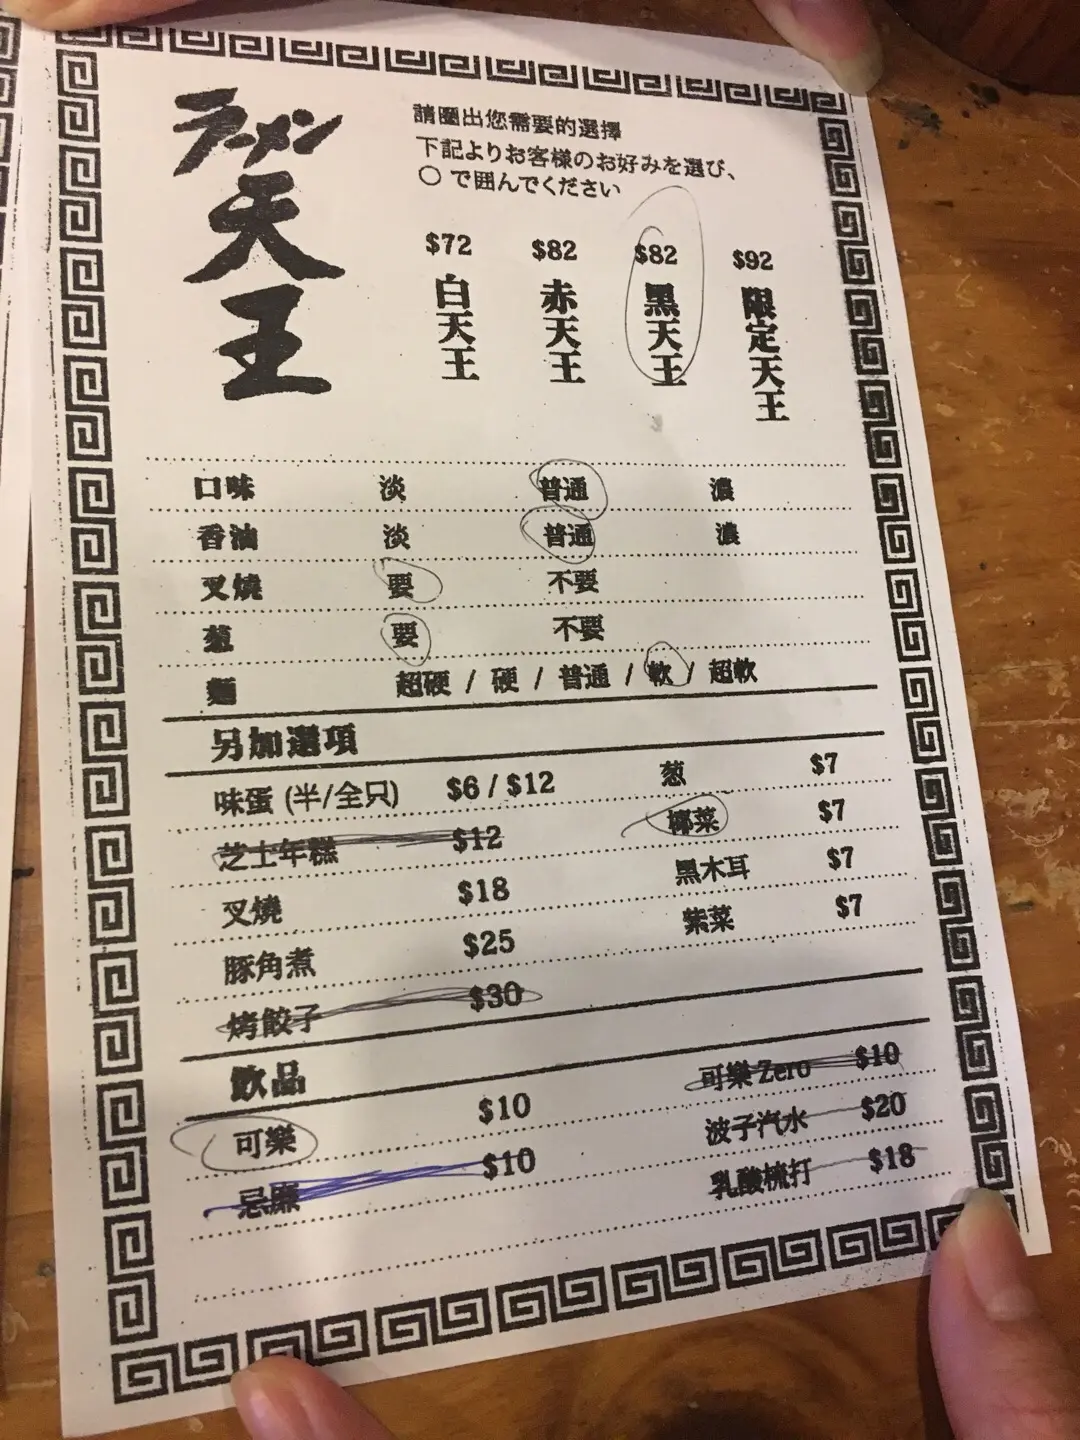 ラーメン
天
王
請圈出您需要的選擇
下記よりお客様のお好みを選び、
○で囲んでください
$72 $82 $82 $92
白天王 赤天王 黑天王 限定天王
口味 淡 普通 濃
香油 淡 普通 濃
叉燒 要 不要
葱 要 不要
麵 超硬 / 硬 / 普通 / 軟 / 超軟
另加選項
味蛋 (半/全只) $6 / $12 葱 $7
芝士年糕 $12 椰菜 $7
叉燒 $18 黑木耳 $7
豚角煮 $25 紫菜 $7
烤餃子 $30
飲品
可樂 $10 可樂 Zero $10
忌廉 $10 波子汽水 $20
乳酸梳打 $18